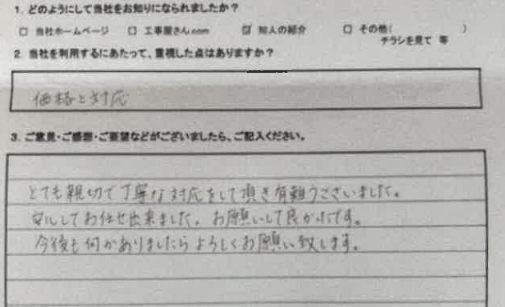 1. どのようにして当社をお知りになられましたか？
□ 当社ホームページ □ 工事屋さん.com ☑ 知人の紹介 □ その他( )
チラシを見て 等
2. 当社を利用するにあたって、重視した点はありますか？
価格と対応
3. ご意見・ご感想・ご要望などがございましたら、ご記入ください。
とても親切で丁寧な対応をして頂き有難うございました。
安心してお任せ出来ました。お願いして良かったです。
今後も何かありましたらよろしくお願い致します。